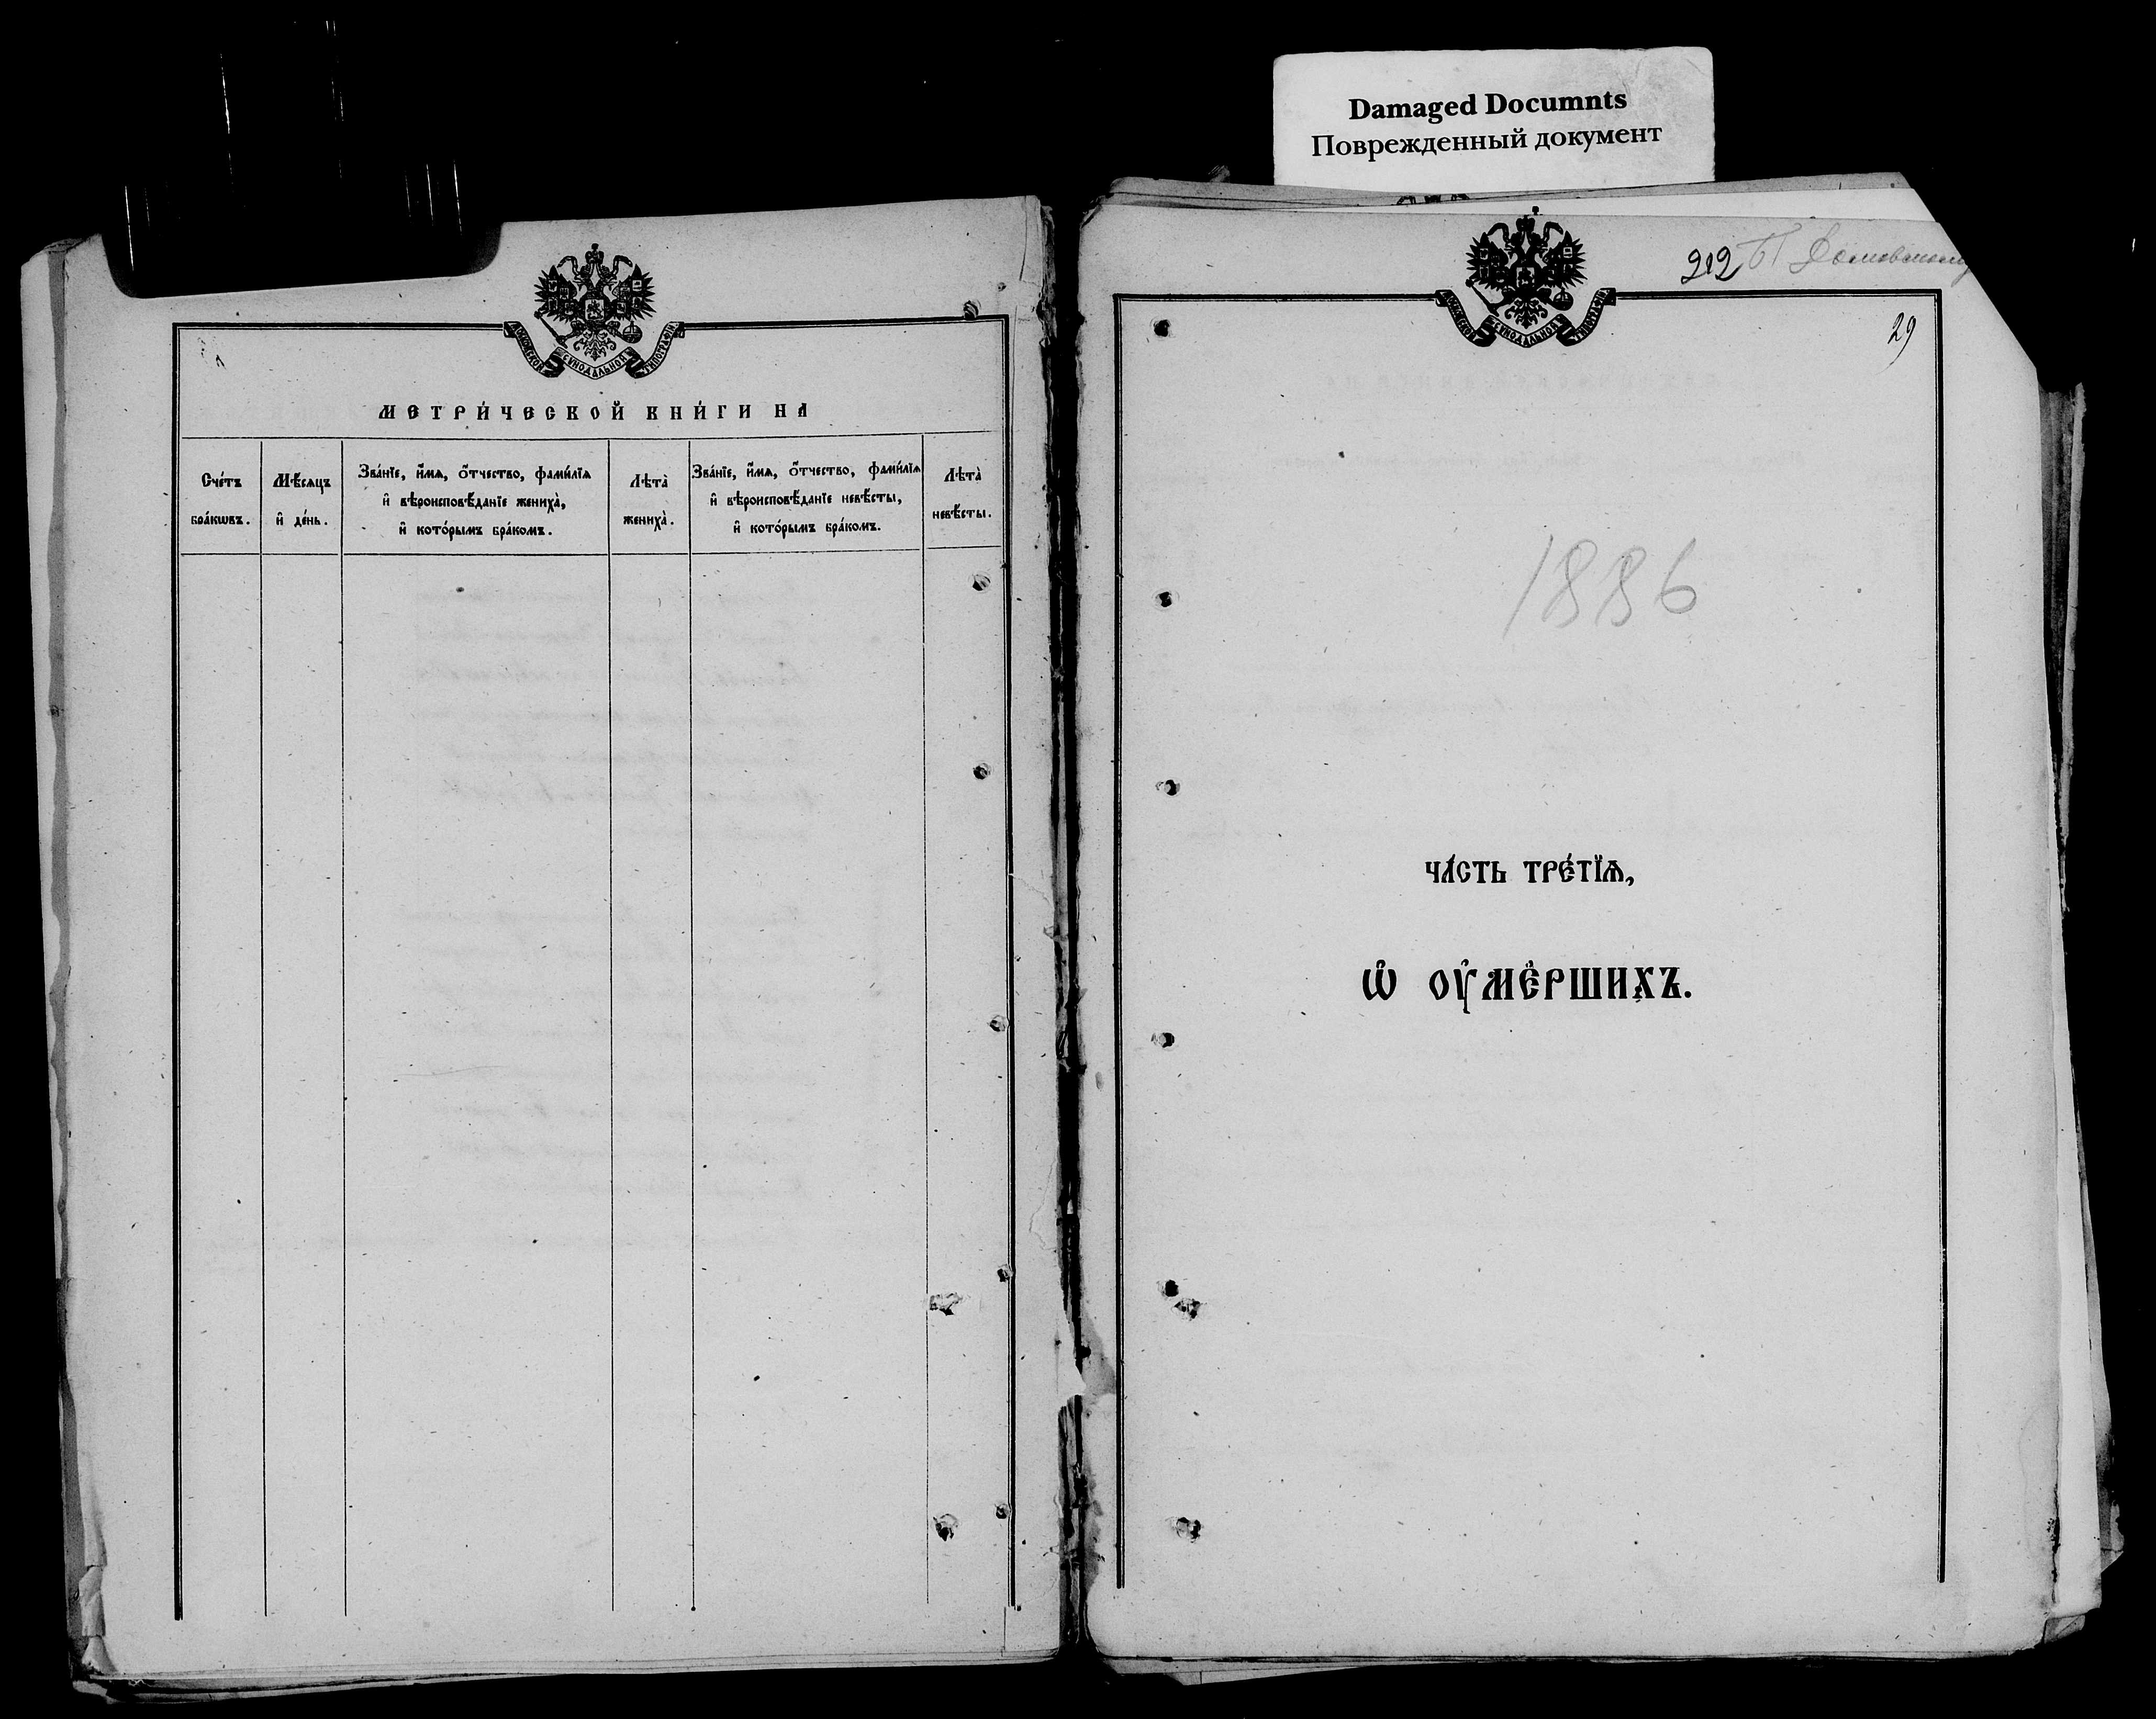 Damaged Documnts
Поврежденный документ
МОСКОВСКОЙ СѴНОДАЛЬНОЙ ТИПОГРАФІИ.
МЕТРИ́ЧЕСКОЙ КНИ́ГИ НА
Сче́тъ бра́кѡвъ.
Мѣ́сяцъ и҆ де́нь.
Зва́нїе, и҆́мѧ, ѻ҆́тчество, фами́лїѧ
и҆ вѣроисповѣ́данїе жениха̀,
и҆ кото́рымъ бра́комъ.
Лѣта̀ жениха̀.
Зва́нїе, и҆́мѧ, ѻ҆́тчество, фами́лїѧ
и҆ вѣроисповѣ́данїе невѣ́сты,
и҆ кото́рымъ бра́комъ.
Лѣта̀ невѣ́сты.
212
МОСКОВСКОЙ СѴНОДАЛЬНОЙ ТИПОГРАФІИ.
29
1886
ЧА́СТЬ ТРЕ́ТЇѦ,
Ѡ҆ ОУ҆МЕ́РШИХЪ.